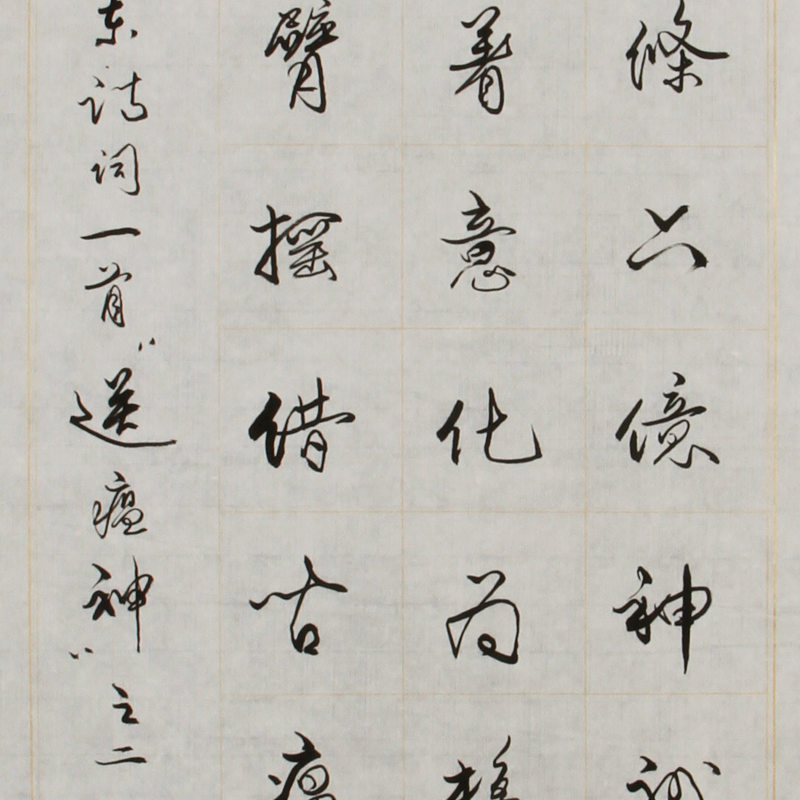 條六億神
着意化为
臂摇借问
东诗词一首“送瘟神”之二